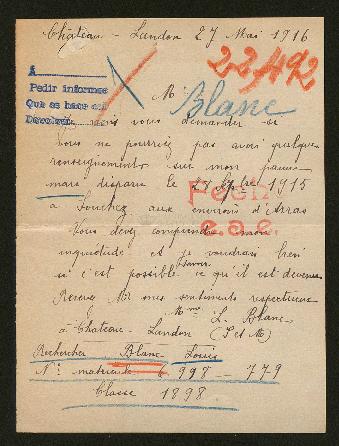 Château-Landon 27 Mai 1916
22492
A
Pedir informes
Que se hace
Devolver
Mr
Blanc
vous demander si
Vous ne pourriez pas avoir quelque
renseignements sur mon pauvre
mari disparu le 27 Sptbre 1915
à Souchez aux environs d'Arras
Vous devez comprendre mon
inquiétude et je voudrais bien
savoir
si c'est possible ce qu'il est devenu
Recevez Mr mes sentiments respectueux
Mme L. Blanc
à Chateau-Landon (S et M)
Rechercher Blanc Louis
No matricule 6998 - 779
Classe 1898